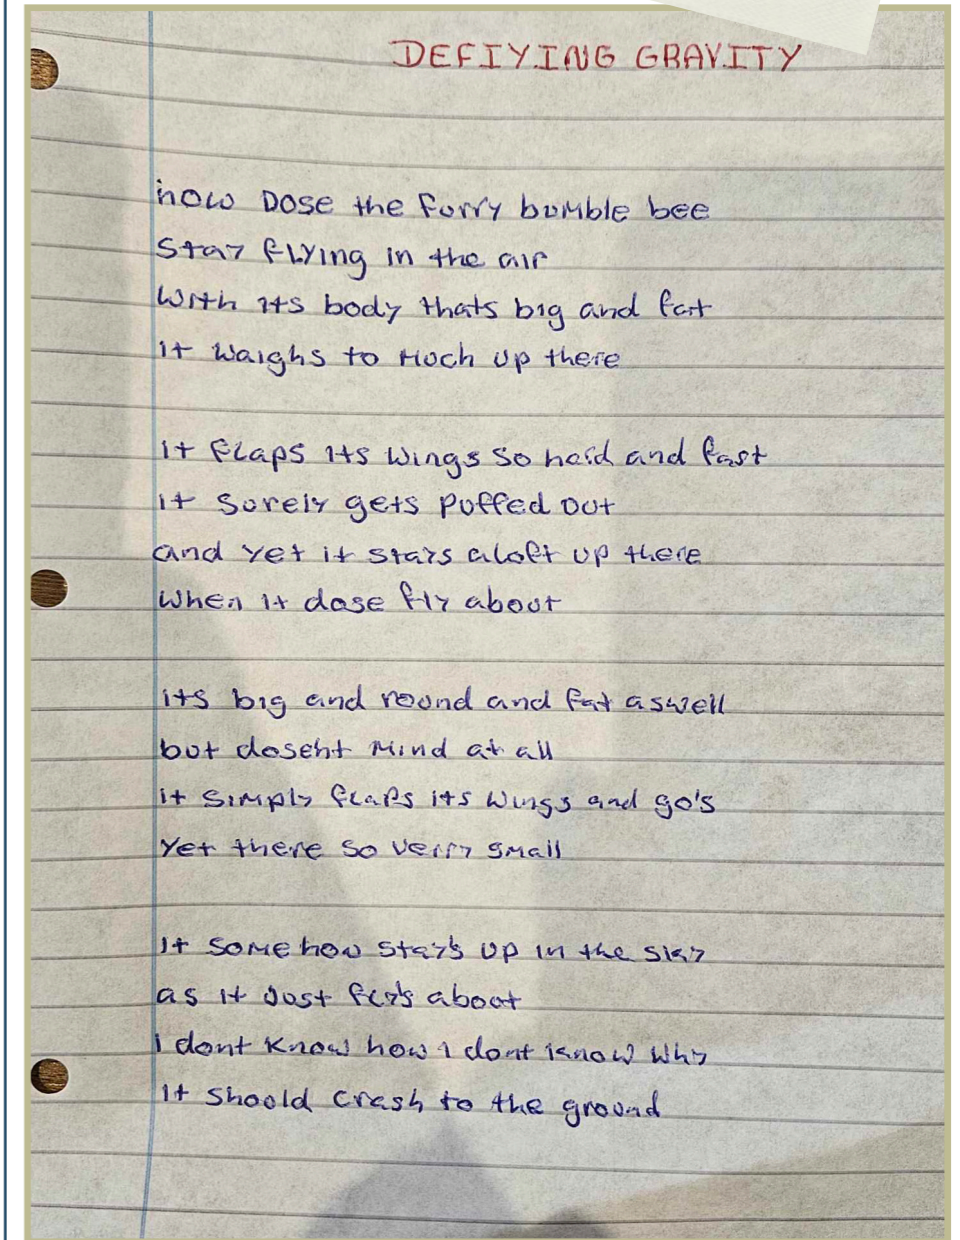 DEFIYING GRAVITY
how Dose the furry bumble bee
Stay flying in the air
With its body thats big and fat
it Waighs to Much up there
it flaps its wings so hard and fast
it Surely gets puffed out
and yet it stays aloft up there
When it dose fly about
its big and round and fat aswell
but dosent Mind at all
it simply flaps its wings and go's
Yet there so verry small
It some how stay's up in the sky
as it Just fly's about
i dont know how i dont know why
it should crash to the ground